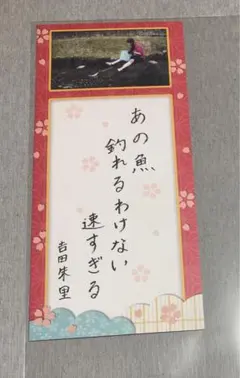 あの魚
釣れるわけない
速すぎる
吉田朱里